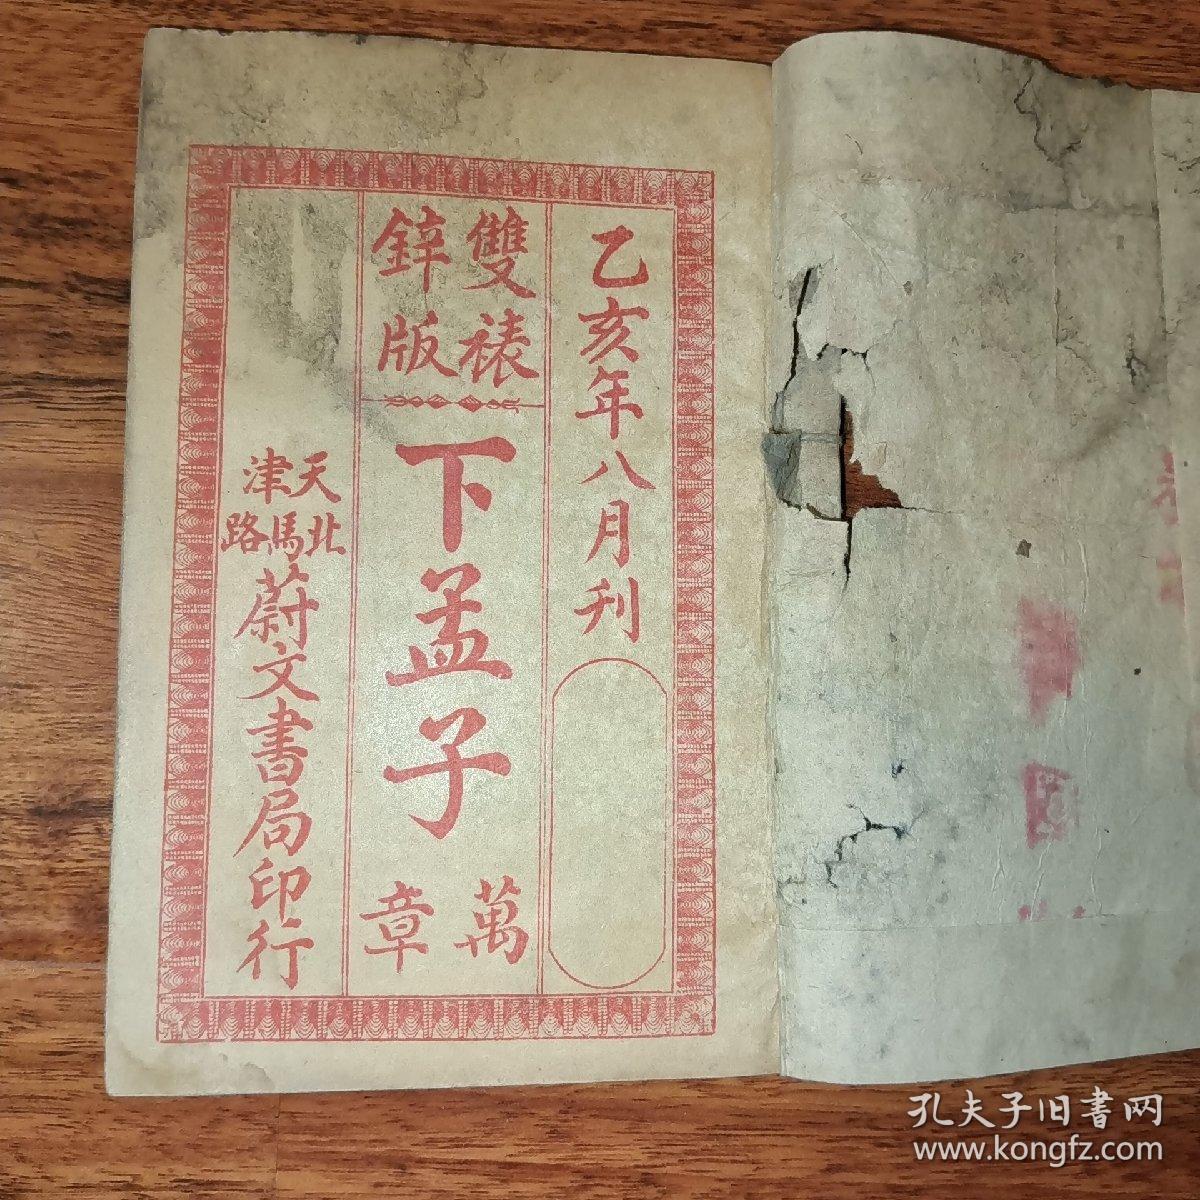 乙亥年八月刊
雙裱
鋅版
下孟子
萬章
天津
北馬路
蔚文書局印行
孔夫子旧書网
www.kongfz.com